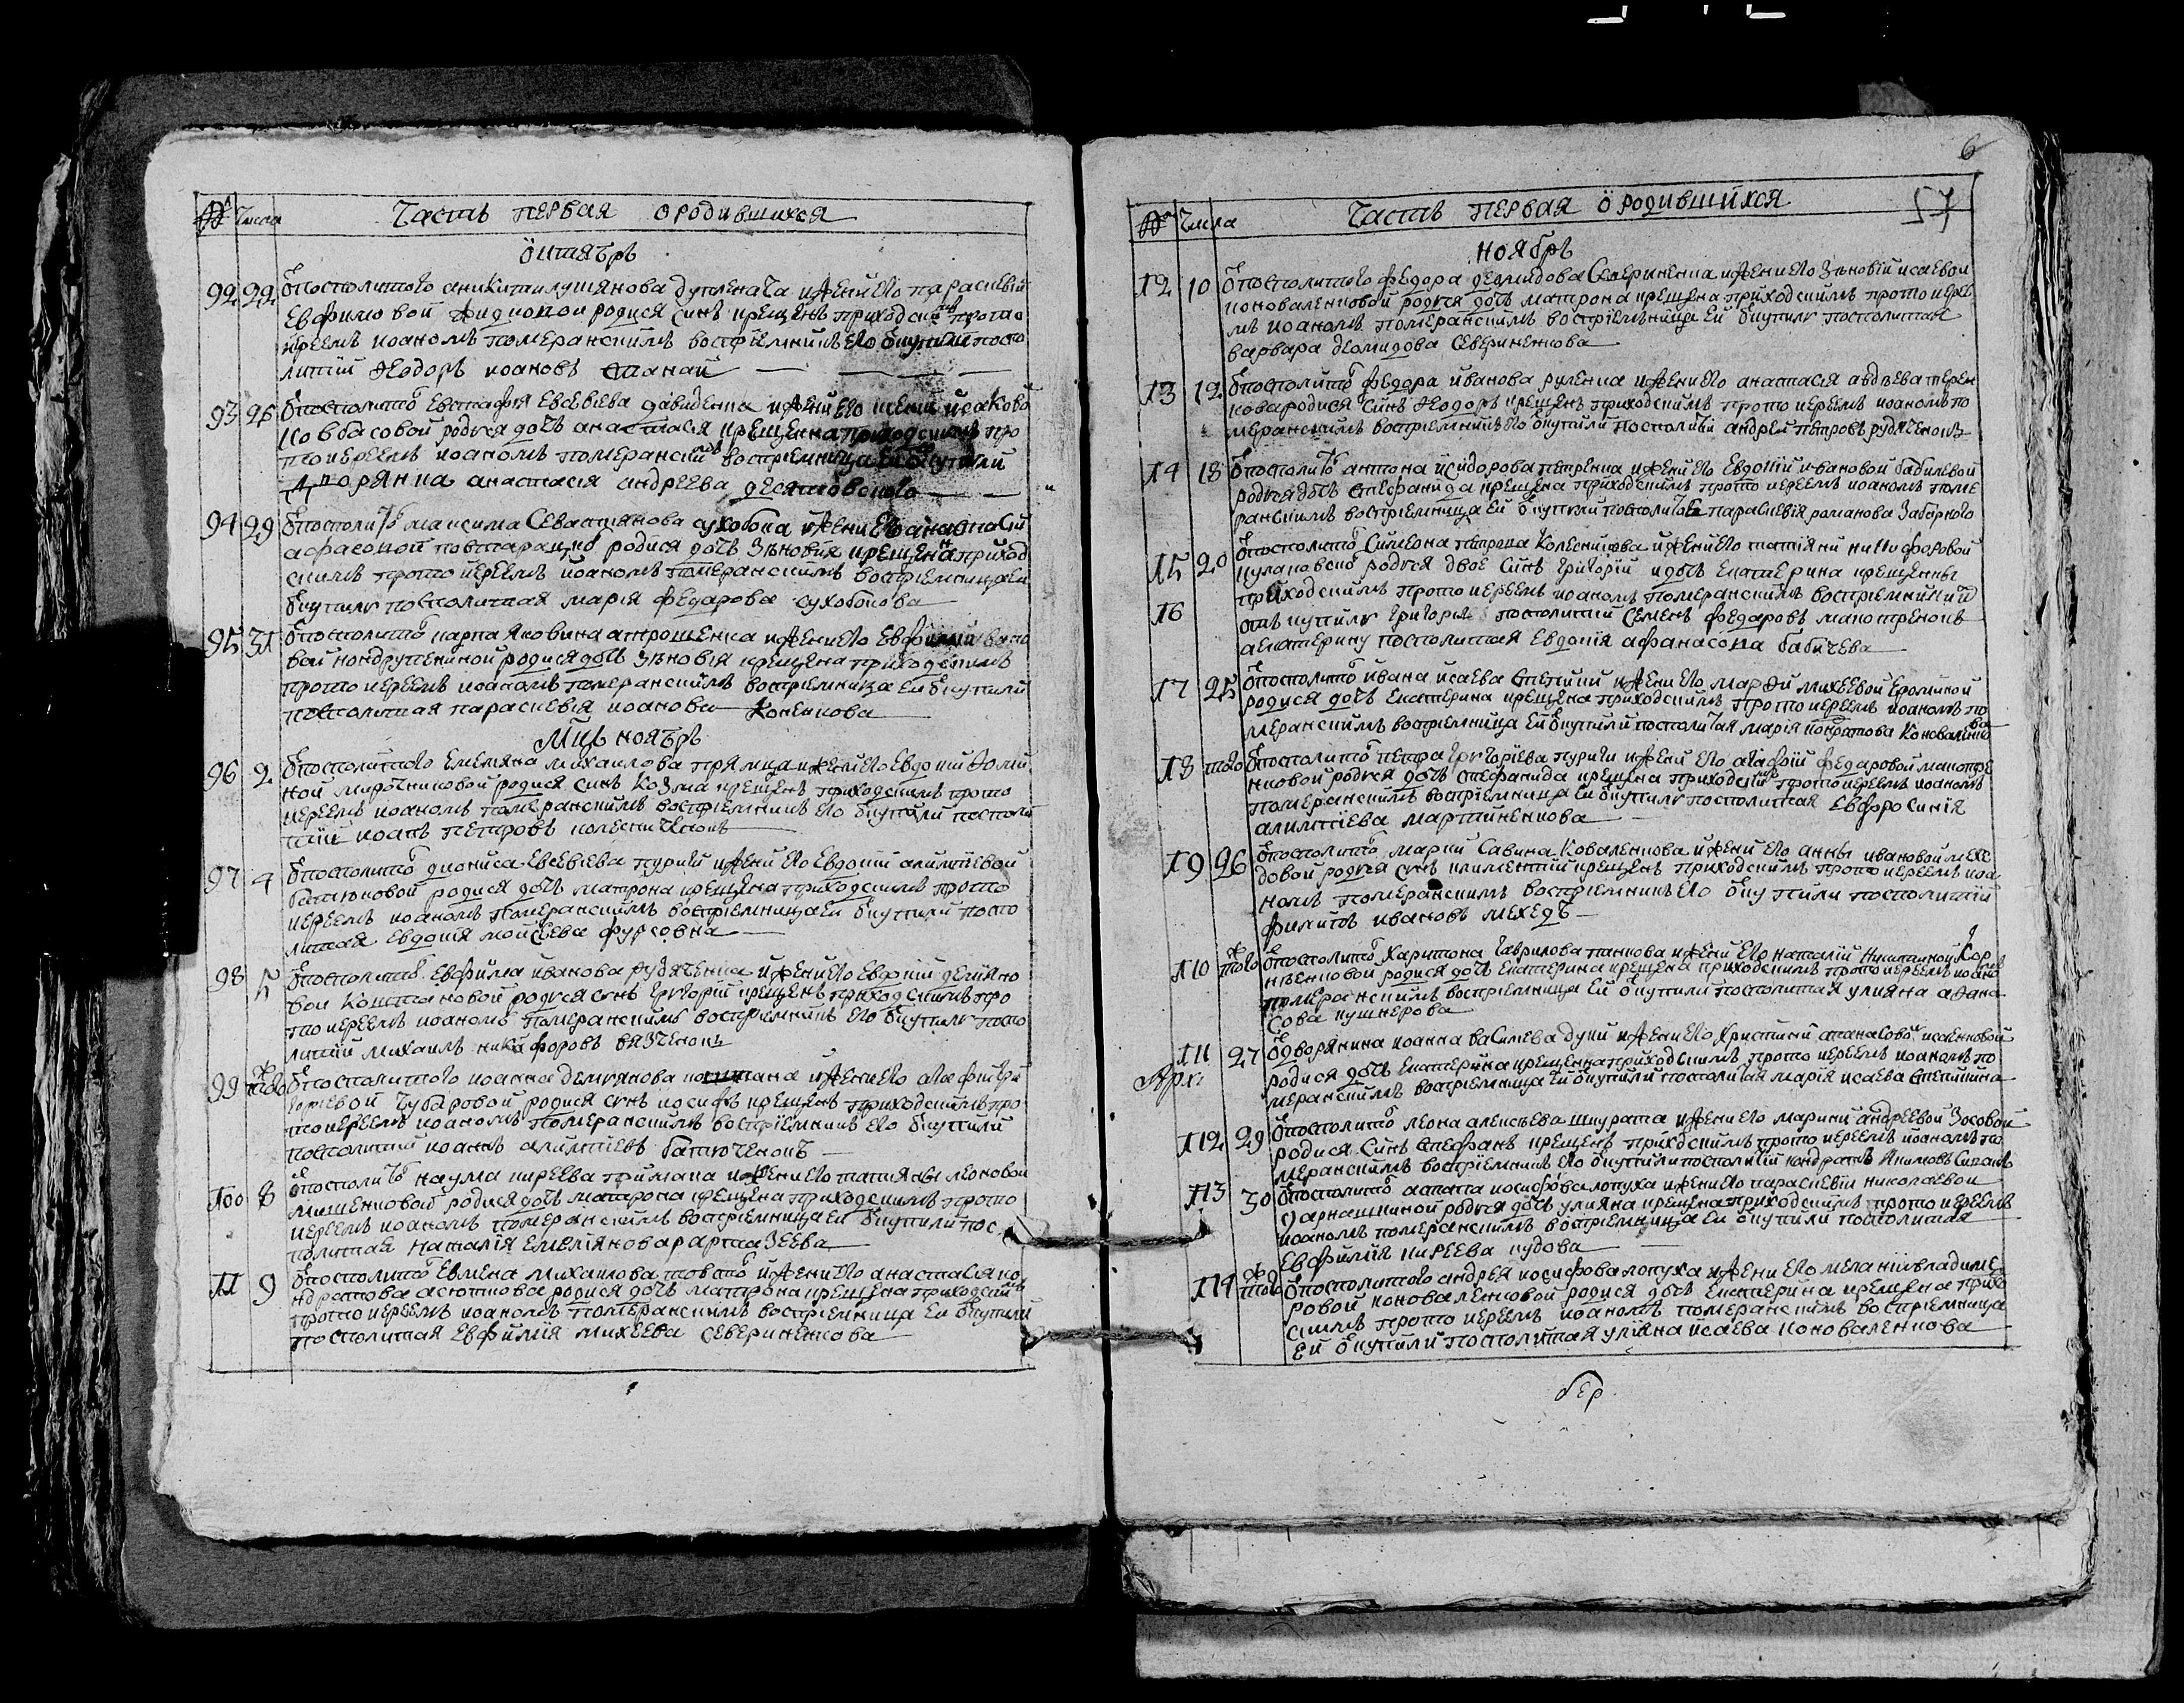 № Числа Часть первая о родившихся
Октябрь
92 22 Ѿ посполитого аникити лукиянова дуплената и жени его параскевии
Евфимовой родися синъ крещенъ приходскимъ прото
иреемъ иоаномъ померанскимъ восприемникъ его ѿ купили поспо
литий Феодоръ иоановъ
93 25 Ѿ посполитого Евстафия Евсевиева давиденка и жени его исаково
ковбасовой родися дочь анастасия крещенна приходскимъ про
тоиереемъ иоаномъ померанскимъ восприемница ей ѿ купили
дворянка анастасия андреева десятовского
94 29 Ѿ посполитого максима Севастиянова сухобока и жени его анастасии
родися дочь Зѣновия крещенна приход
скимъ протоиереемъ иоаномъ померанскимъ восприемница ей
ѿ купили посполитая мария федорова сухобокова
95 31 Ѿ посполитого карпа Яковина антрошенка и жени его Евфимии ивано
вой родися дочь Зѣновия крещена приходскимъ
протоиереемъ иоаномъ померанскимъ восприемница ей ѿ купили
посполитая параскевия иоанова коненкова
Мцъ ноябрь
96 2 Ѿ посполитого Емеляна михаилова и жени его Евдокии
ной мирочниковой родися синъ Козма крещенъ приходскимъ прото
иереемъ иоаномъ померанскимъ восприемникъ его ѿ купили посполи
тий иоанъ петровъ колесниченокъ
97 4 Ѿ посполитого диониса Евсевиева пуриги и жени его Евдокии алимпиевой
батюковой родися дочь матрона крещена приходскимъ прото
иереемъ иоаномъ померанскимъ восприемница ей ѿ купили поспо
литая Евдокия мойсеева фурсовна
98 5 Ѿ посполитого Евфима иванова рудяченка и жени его
вои коштановой родися синъ григорий крещенъ приходскимъ про
тоиереемъ иоаномъ померанскимъ восприемникъ его ѿ купили поспо
литий михаилъ никифоровъ вязченокъ
99 того ж Ѿ посполитого иоанна демянова и жени его агафи григо
риевой чубаровой родися синъ иосифъ крещенъ приходскимъ про
тоиереемъ иоаномъ померанскимъ восприемникъ его ѿ купили
посполитий иоаннъ алимпиевъ батюченокъ
100 8 Ѿ посполитого наума киреева тримана и жени его татияны леоновой
мишенковой родися дочь матрона крещена приходскимъ прото
иереемъ иоаномъ померанскимъ восприемница ей ѿ купили пос
политая наталия Емелиянова
11 9 Ѿ посполитого Евмена михаилова товстого и жени его анастасия ко
ндратова родися дочь матрона крещена приходскимъ
протоиереемъ иоаномъ померанскимъ восприемница ей ѿ купили
посполитая Евфимия михеева севериненкова
6
57
№ Числа Часть первая о родившийхся
Ноябрь
12 10 Ѿ посполитого федора демидова Севериненка и жени его Зѣновий исаевой
коноваленковой родися дочь матрона крещена приходскимъ протоиерее
мъ иоаномъ померанскимъ восприемница ей ѿ купили посполитая
варвара деомидова Севериненкова
13 12 Ѿ посполитого федора иванова руденка и жени его анастасия
кова родися синъ Феодоръ крещенъ приходскимъ протоиереемъ иоаномъ по
меранскимъ восприемникъ его ѿ купили посполитий андрей петровъ рудяченокъ
14 18 Ѿ посполитого антона исидорова петренка и жени его Евдокий ивановой бабилевой
родися дочь стефанида крещена приходскимъ протоиереемъ иоаномъ поме
ранскимъ восприемница ей ѿ купили посполитая параскевия романова Заборного
15 20 Ѿ посполитого Симеона петрова Колесникова и жени его татияни никифоровой
кулаковско родися двое синъ григорий и дочь Екатерина крещенны
приходскимъ протоиереемъ иоаномъ померанскимъ восприемники
16 отъ купили григория посполитий Семенъ федоровъ
а Екатерину посполитая Евдокия афанасова бабичева
17 25 Ѿ посполитого ивана исаева степики и жени его марфи михеевой Ероминой
родися дочь Екатерина крещена приходскимъ протоиереемъ иоаномъ по
меранскимъ восприемница ей ѿ купили посполитая мария кондратова Коноваленкова
18 того Ѿ посполитого петра григориева пуриги и жени его агафий федоровой
нковой родися дочь стефанида крещена приходскимъ протоиереемъ иоаномъ
померанскимъ восприемница ей ѿ купили посполитая Евфросиния
алимпиева мартиненкова
19 26 Ѿ посполитого марки Савина Коваленкова и жени его анны ивановой мехе
довой родися синъ климентий крещенъ приходскимъ протоиереемъ иоа
номъ померанскимъ восприемникъ его ѿ купили посполитий
филипъ ивановъ мехедъ
110 того ж Ѿ посполитого Харитона гаврилова панкова и жени его наталий Никитиной Кор
нѣенковой родися дочь Екатерина крещена приходскимъ протоиереемъ иоано
померанскимъ восприемница ей ѿ купили посполитая улияна афана
сова кушнерова
111 27 Ѿ дворянина иоанна василиева дуки и жени его Христини апанасовой исаенковой
родися дочь Екатерина крещенна приходскимъ протоиереемъ иоаномъ по
меранскимъ восприемница ей ѿ купили посполитая мария исаева степикина
112 29 Ѿ посполитого леона алексѣева шкурата и жени его марини андреевой Зосовой
родися синъ стефанъ крещенъ приходскимъ протоиереемъ иоаномъ по
меранскимъ восприемникъ его ѿ купили посполитий кондратъ Якимовъ
113 30 Ѿ посполитого агапа иосифова лопуха и жени его параскевии николаевой
родися дочь улияна крещена приходскимъ протоиереемъ
иоаномъ померанскимъ восприемница ей ѿ купили посполитая
Евфимия киреева кудова
114 того ж Ѿ посполитого андрея иосифова лопуха и жени его мелании владиме
ровой коноваленковой родися дочь Екатерина крещена прихо
скимъ протоиереемъ иоаномъ померанскимъ восприемница
ей ѿ купили посполитая улияна исаева коноваленкова